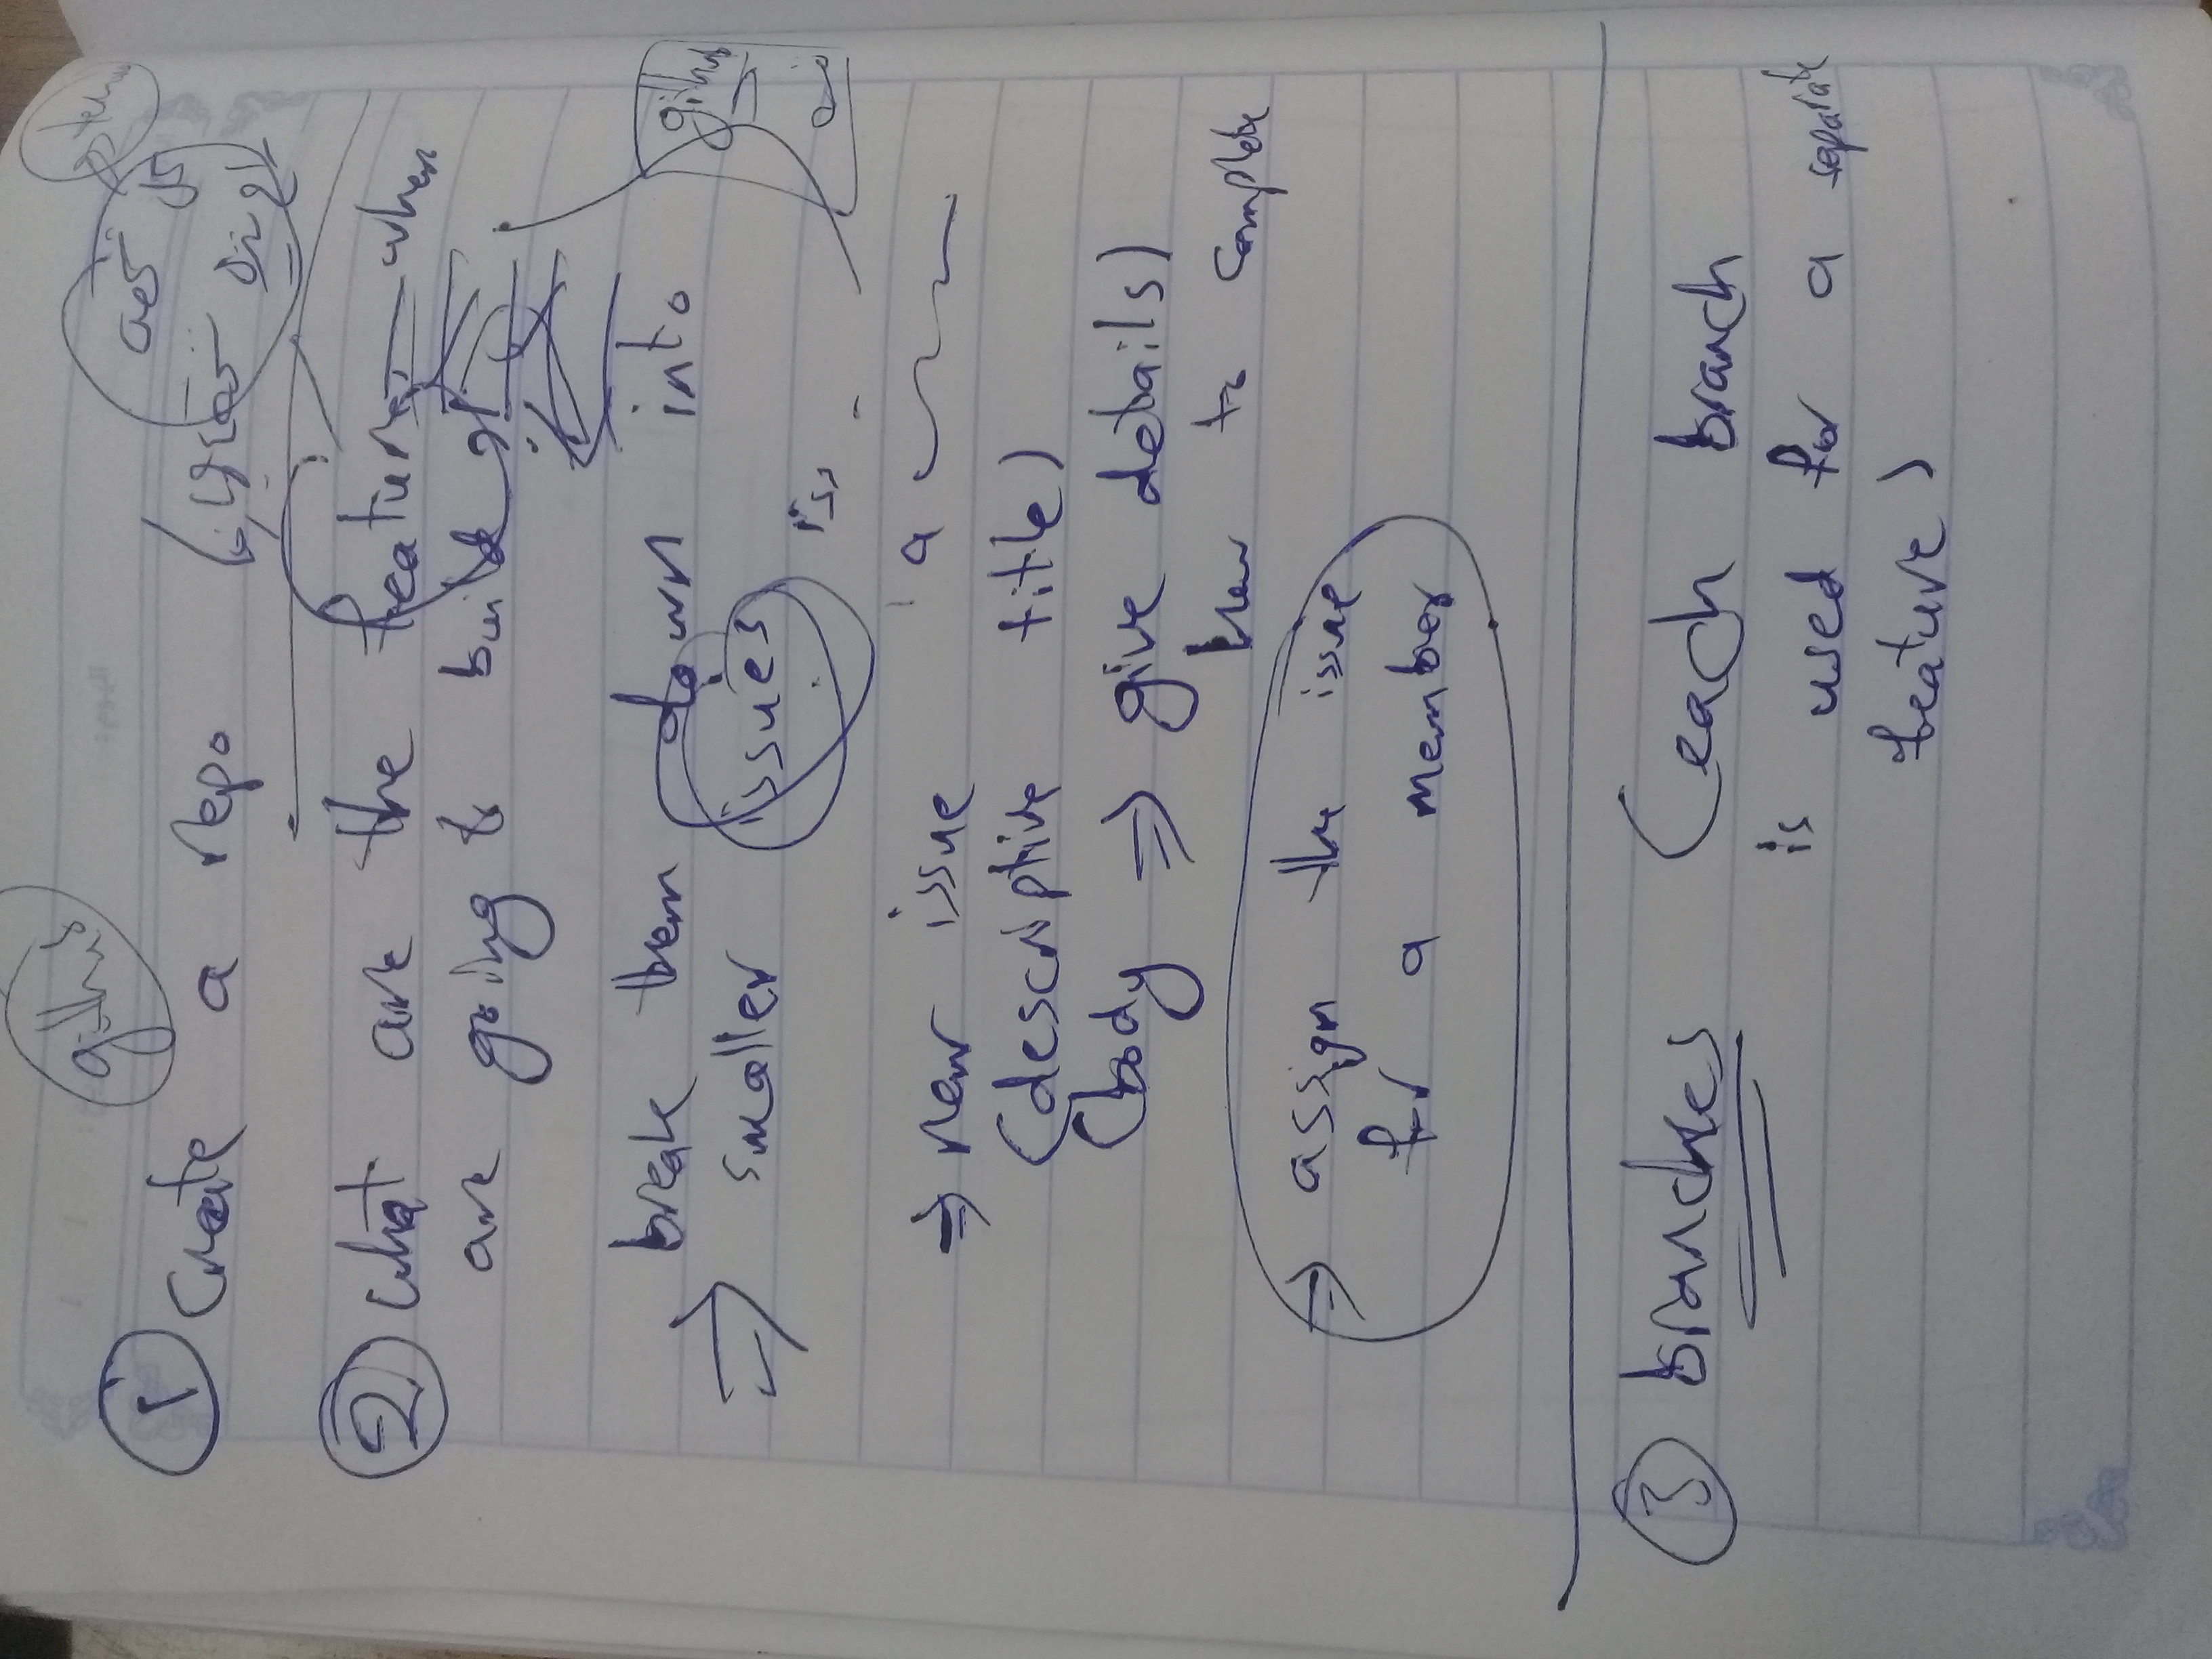 github
① Create a repo
② what are the features when
are going to build
break them down into
⇒ smaller issues
github
iss
⇒ new issue a
(descriptive title)
(body ⇒ give details)
how to complete
⇒ assign the issue
for a member
③ branches (each branch
is used for a separate
feature)